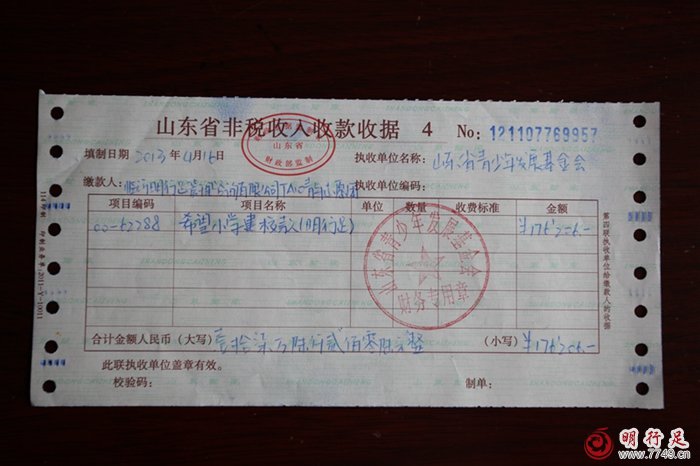 山东省非税收入收款收据 4 No: 121107769957
山东省
财政部监制
填制日期 2013年4月16日 执收单位名称: 山东省青少年发展基金会
缴款人: 执收单位编码:
项目编码 项目名称 单位 数量 收费标准 金额
希望小学建校款(明行足) ¥176206.-
山东省青少年发展基金会
财务专用章
合计金额人民币(大写) 壹拾柒万陆仟贰佰零陆元整 (小写) ¥176206.-
此联执收单位盖章有效。
校验码: 制单:
第四联执收单位给缴款人的收据
明行足
www.7749.cn